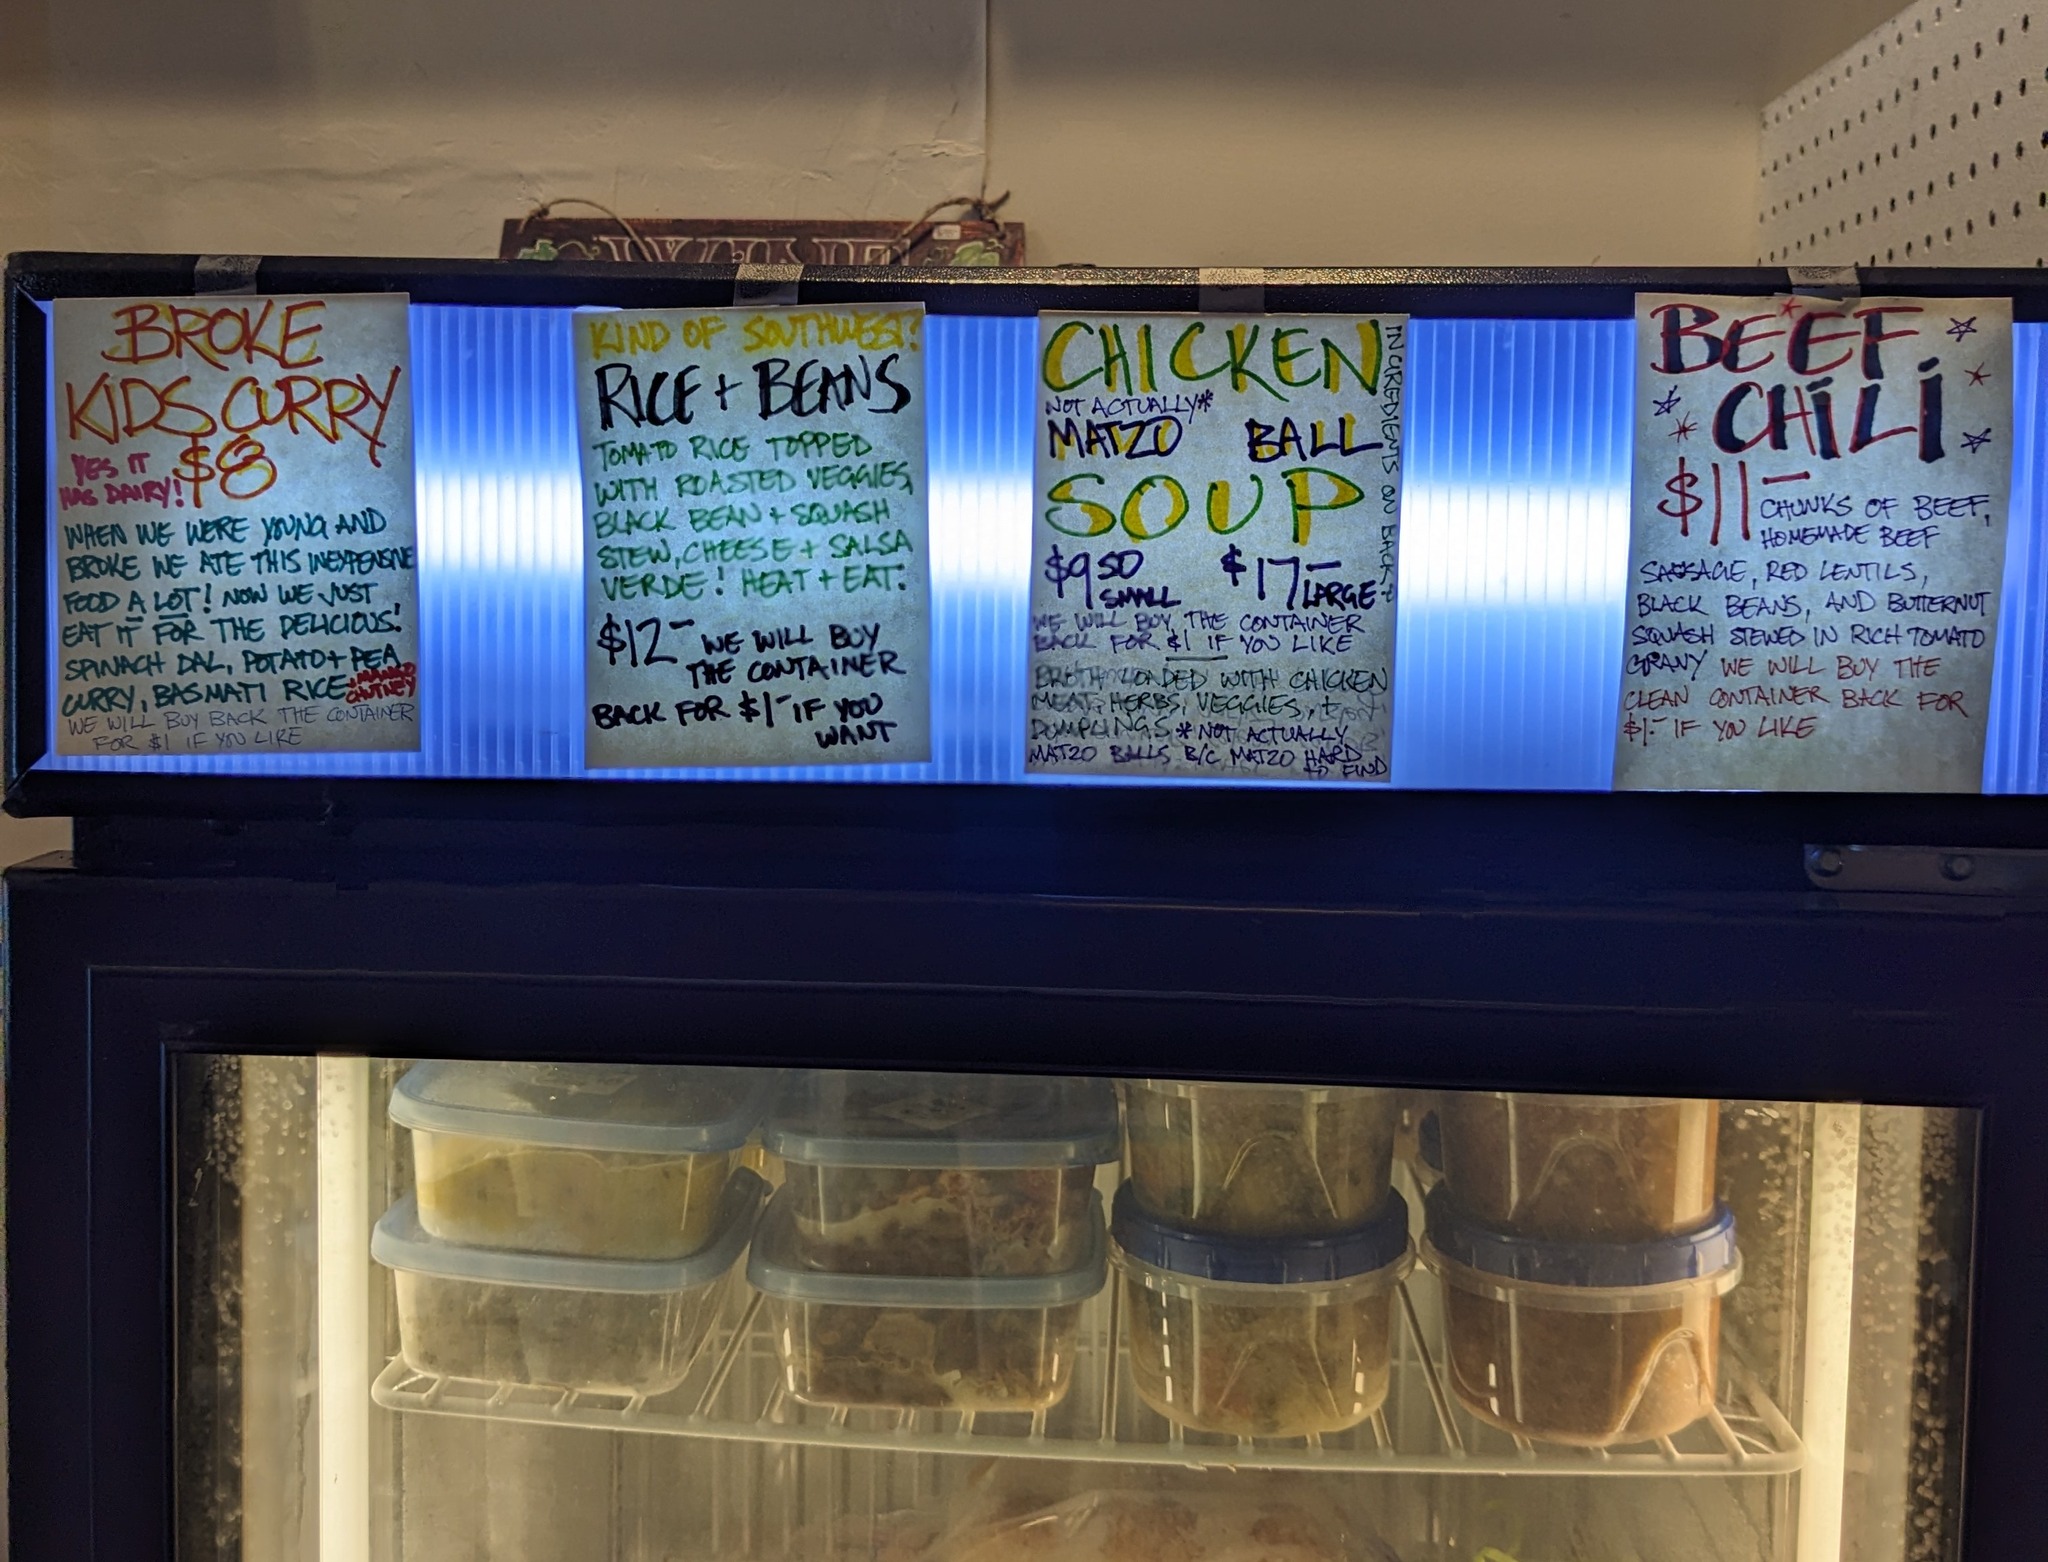 WINE
BROKE
KIDS CURRY
YES IT
HAS DAIRY!
$8
WHEN WE WERE YOUNG AND
BROKE WE ATE THIS INEXPENSIVE
FOOD A LOT! NOW WE JUST
EAT IT FOR THE DELICIOUS!
SPINACH DAL, POTATO + PEA
CURRY, BASMATI RICE, MANGO
CHUTNEY
WE WILL BUY BACK THE CONTAINER
FOR $1 IF YOU LIKE
KIND OF SOUTHWEST?
RICE + BEANS
TOMATO RICE TOPPED
WITH ROASTED VEGGIES,
BLACK BEAN + SQUASH
STEW, CHEESE + SALSA
VERDE! HEAT + EAT!
$12- WE WILL BUY
THE CONTAINER
BACK FOR $1- IF YOU
WANT
CHICKEN
NOT ACTUALLY*
MATZO BALL
SOUP
$9.50 $17-
SMALL LARGE
WE WILL BUY THE CONTAINER
BACK FOR $1 IF YOU LIKE
BROTH LOADED WITH CHICKEN
MEAT, HERBS, VEGGIES, +
DUMPLINGS *NOT ACTUALLY
MATZO BALLS B/C MATZO HARD
TO FIND
INGREDIENTS ON BACK
BEEF
CHILI
$11- CHUNKS OF BEEF,
HOMEMADE BEEF
SAUSAGE, RED LENTILS,
BLACK BEANS, AND BUTTERNUT
SQUASH STEWED IN RICH TOMATO
GRAVY WE WILL BUY THE
CLEAN CONTAINER BACK FOR
$1- IF YOU LIKE